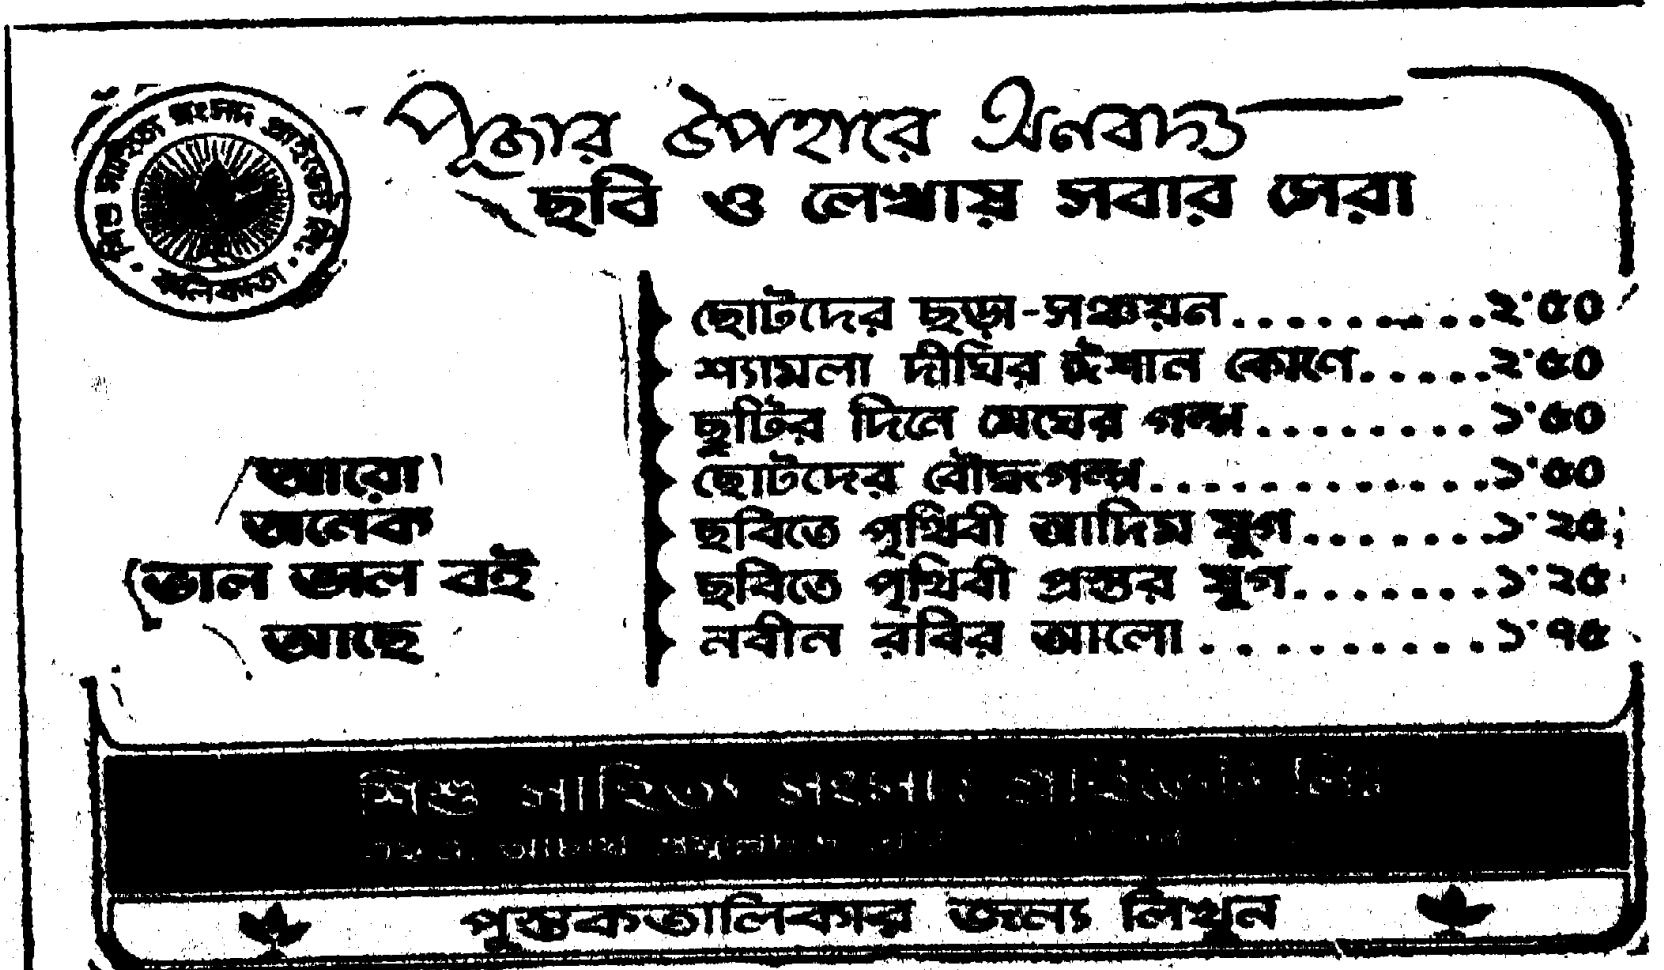 শিশু সাহিত্য সংসদ প্রাইভেট লিঃ
কলিকাতা
পূজার উপহারে অনবদ্য
ছবি ও লেখায় সবার সেরা
ছোটদের ছড়া-সঞ্চয়ন..........২·৫০
শ্যামলা দীঘির ঈশান কোণে.....২·৫০
ছুটির দিনে মেঘের গল্প........১·৫০
ছোটদের বৌদ্ধগল্প............১·৫০
ছবিতে পৃথিবী আদিম যুগ.......১·২৫
ছবিতে পৃথিবী প্রস্তর যুগ.......১·২৫
নবীন রবির আলো..........১·৭৫
আরো
অনেক
ভাল ভাল বই
আছে
শিশু সাহিত্য সংসদ প্রাইভেট লিঃ
পুস্তকতালিকার জন্য লিখুন